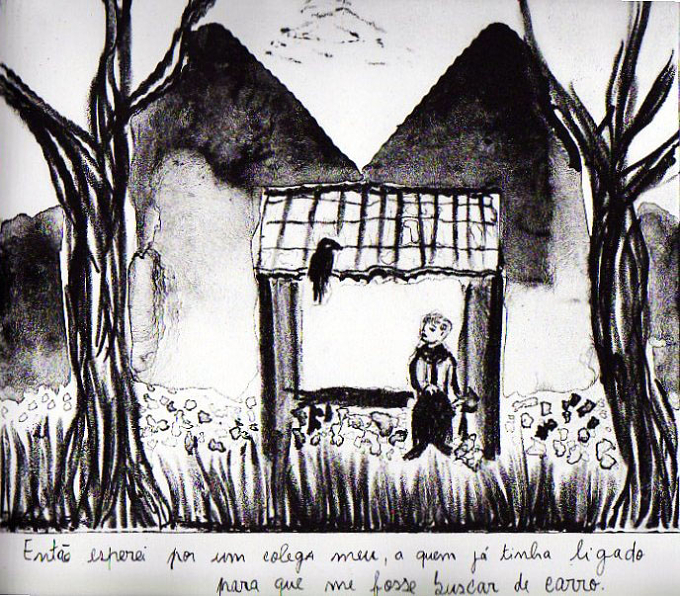 Então esperei por um colega meu, a quem já tinha ligado
para que me fosse buscar de carro.